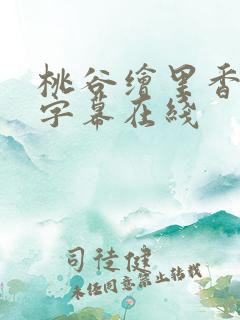 桃谷繪里香
字幕在綫
司徒健
未经同意禁止转载